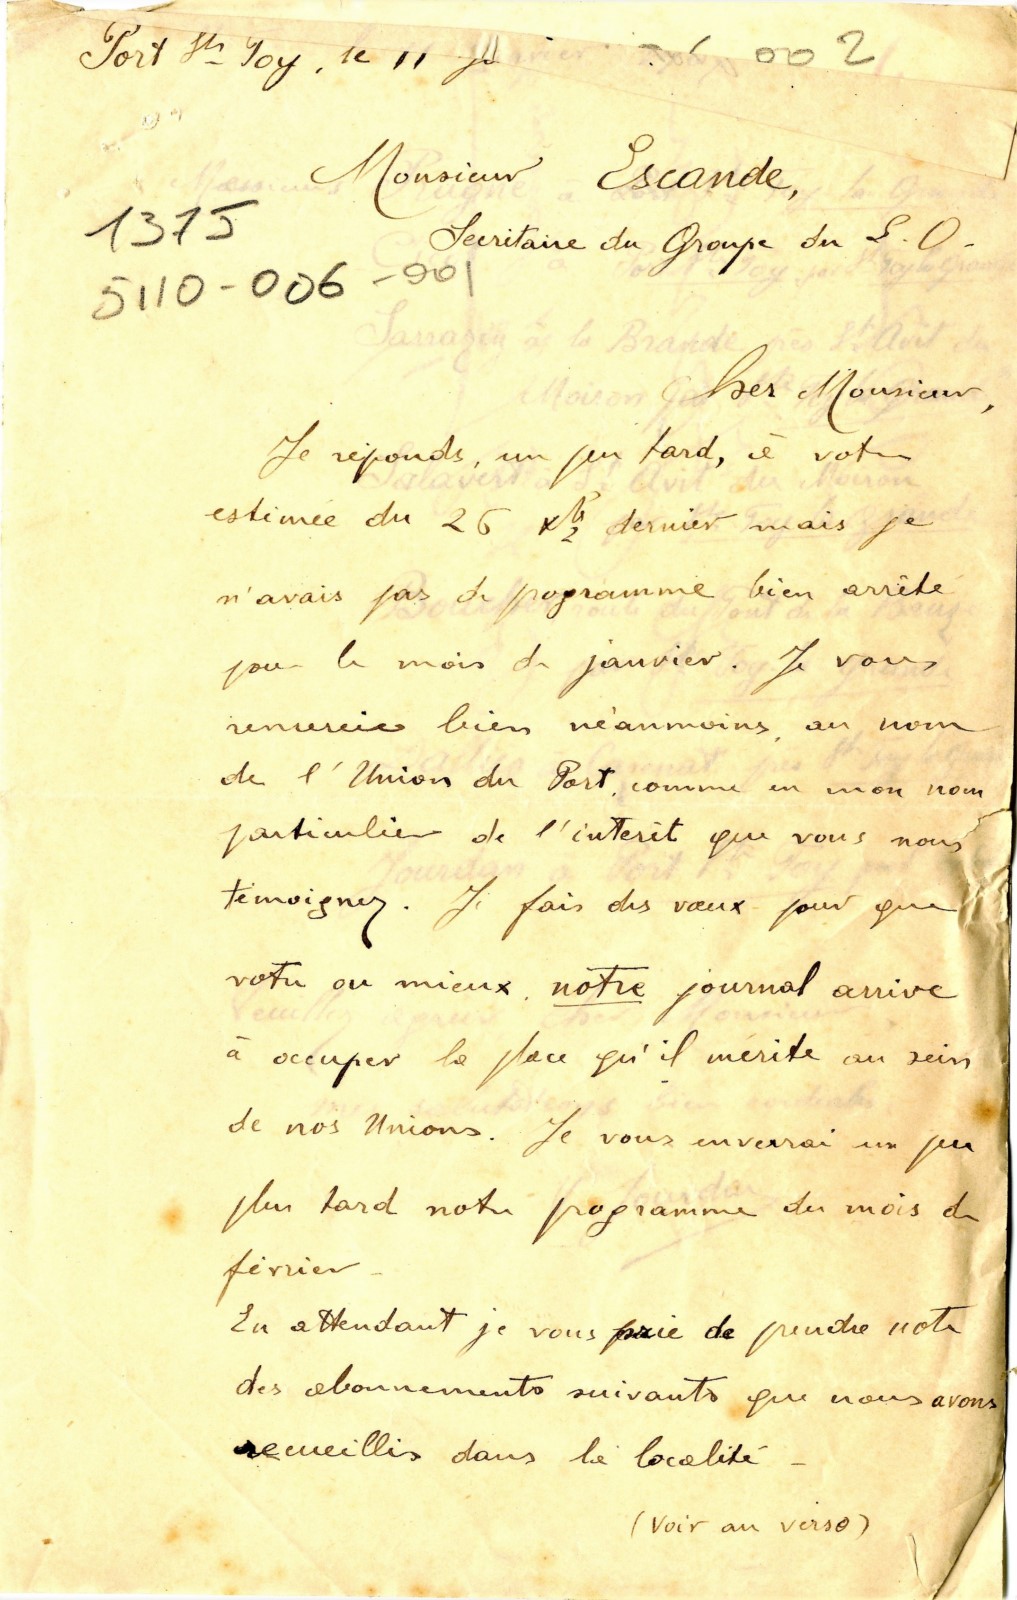 Port Ste Foy, le 11 002
Monsieur Escande,
1375
Secritaire du Groupe du S. O-
5110-006-001
Cher Monsieur,
Je réponds, un peu tard, à votre
estimée du 26 xbre dernier mais je
n'avais pas de pogramme bien arrêté
pour le mois de janvier. Je vous
remercie bien néanmoins, au nom
de l'Union du Port, comme en mon nom
particulier de l'interêt que vous nous
témoignez. Je fais des vœux pour que
votre ou mieux, notre journal arrive
à occuper la place qu'il mérite au sein
de nos Unions. Je vous enverrai un peu
plus tard notre programme du mois de
février -
En attendant je vous prie de prendre note
des abonnements suivants que nous avons
recueillis dans la localité -
(Voir au verso)